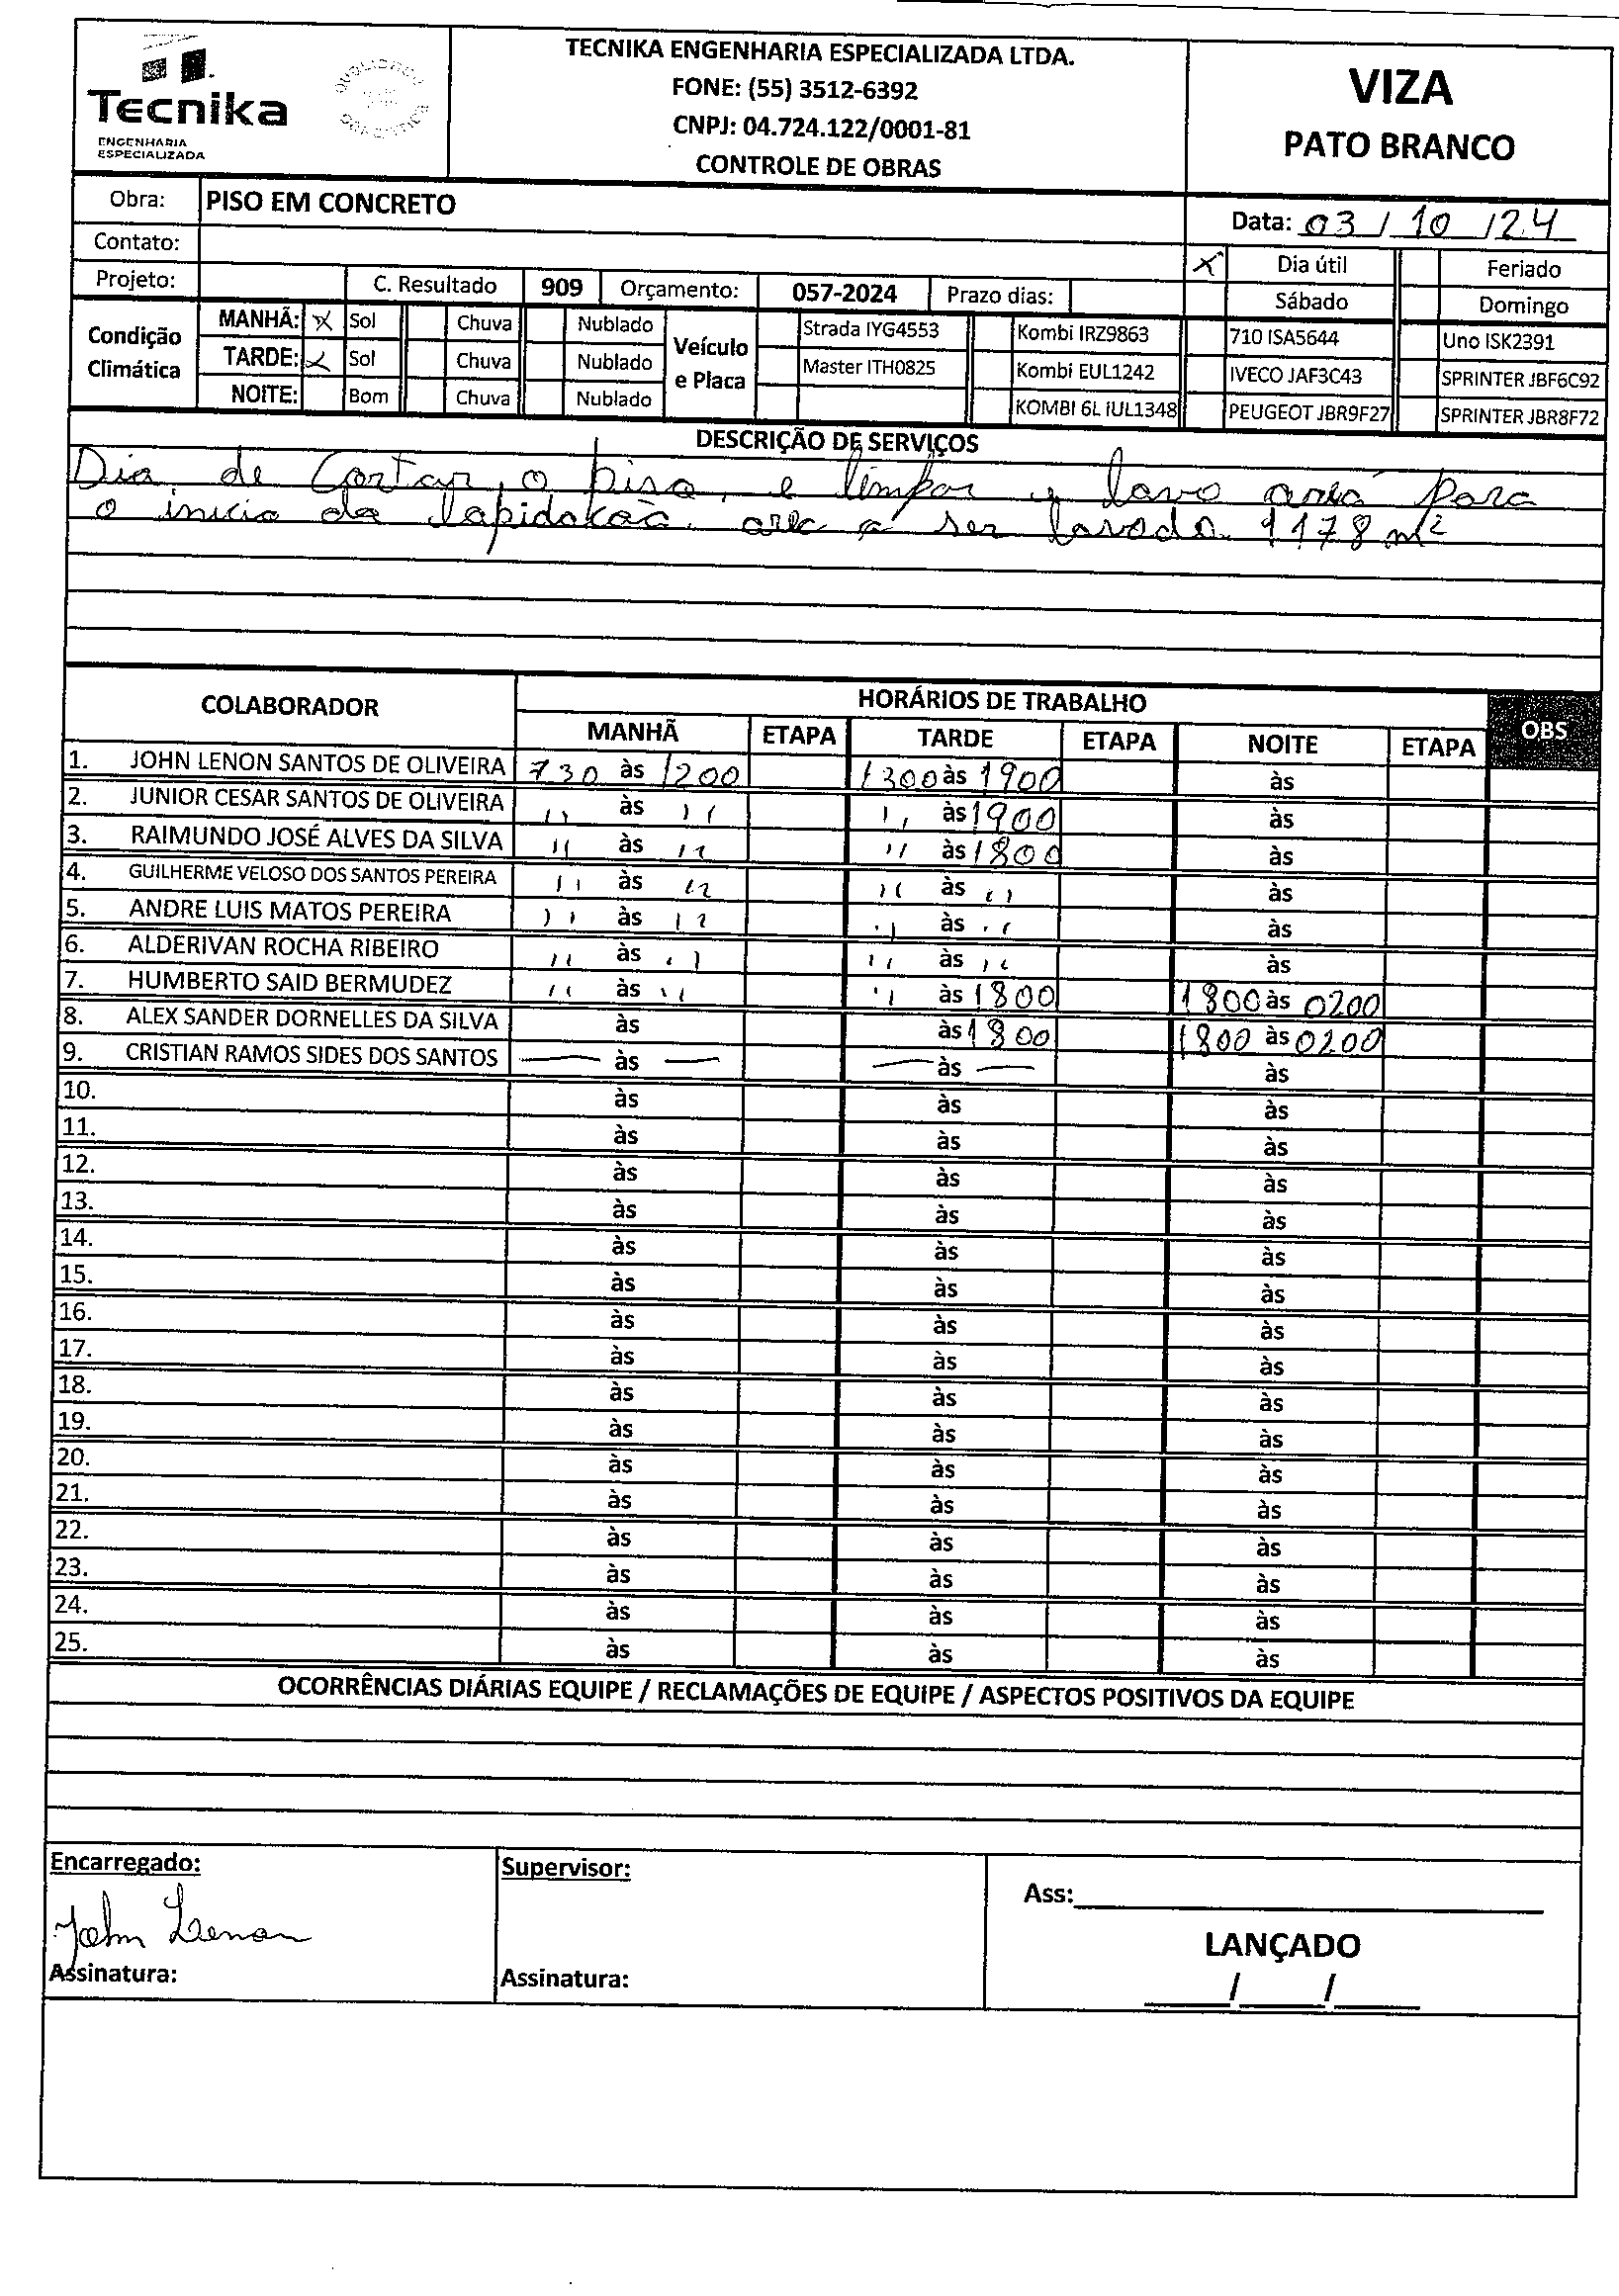 Tecnika
ENGENHARIA
ESPECIALIZADA
TECNIKA ENGENHARIA ESPECIALIZADA LTDA.
FONE: (55) 3512-6392
CNPJ: 04.724.122/0001-81
CONTROLE DE OBRAS
VIZA
PATO BRANCO
Obra: PISO EM CONCRETO
Data: 03 / 10 / 24
Contato:
X Dia útil Feriado
Projeto: C. Resultado 909 Orçamento: 057-2024 Prazo dias: Sábado Domingo
Condição Climática
MANHÃ: X Sol Chuva Nublado
TARDE: X Sol Chuva Nublado
NOITE: Bom Chuva Nublado
Veículo e Placa
Strada IYG4553 Kombi IRZ9863 710 ISA5644 Uno ISK2391
Master ITH0825 Kombi EUL1242 IVECO JAF3C43 SPRINTER JBF6C92
KOMBI 6L IUL1348 PEUGEOT JBR9F27 SPRINTER JBR8F72
DESCRIÇÃO DE SERVIÇOS
Dia de Cortar o piso, e limpar y lavo area para
o inicio da lapidokão. area a ser lavada 1178 m²
COLABORADOR HORÁRIOS DE TRABALHO OBS
MANHÃ ETAPA TARDE ETAPA NOITE ETAPA
1. JOHN LENON SANTOS DE OLIVEIRA 730 às 1200 1300 às 1900 às
2. JUNIOR CESAR SANTOS DE OLIVEIRA '' às '' '' às 1900 às
3. RAIMUNDO JOSÉ ALVES DA SILVA '' às '' '' às 1800 às
4. GUILHERME VELOSO DOS SANTOS PEREIRA '' às '' '' às '' às
5. ANDRE LUIS MATOS PEREIRA '' às '' '' às '' às
6. ALDERIVAN ROCHA RIBEIRO '' às '' '' às '' às
7. HUMBERTO SAID BERMUDEZ '' às '' '' às 1800 1800 às 0200
8. ALEX SANDER DORNELLES DA SILVA às às 1800 1800 às 0200
9. CRISTIAN RAMOS SIDES DOS SANTOS — às — — às — às
10. às às às
11. às às às
12. às às às
13. às às às
14. às às às
15. às às às
16. às às às
17. às às às
18. às às às
19. às às às
20. às às às
21. às às às
22. às às às
23. às às às
24. às às às
25. às às às
OCORRÊNCIAS DIÁRIAS EQUIPE / RECLAMAÇÕES DE EQUIPE / ASPECTOS POSITIVOS DA EQUIPE
Encarregado: Supervisor:
Ass:
John Lenon
LANÇADO
Assinatura: Assinatura:
/ /